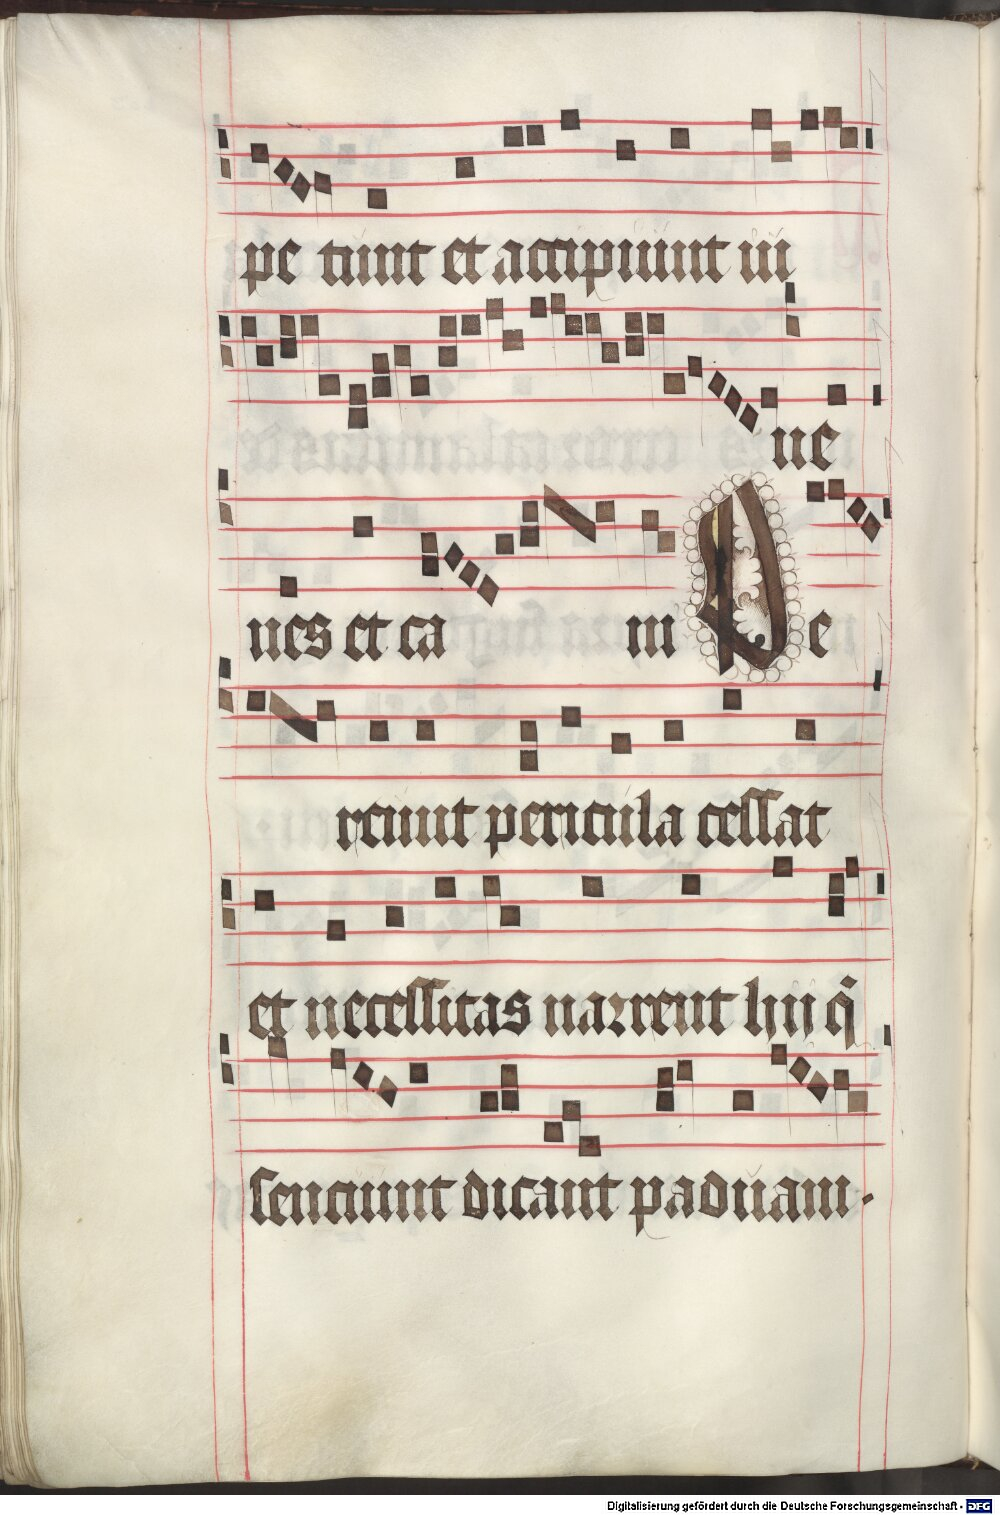 pe tunt et accipiunt iu
ue
nes et ca ni Pe
reunt pericula cessat
et necessitas narrent hii q̄
senciunt dicant paduani.
Digitalisierung gefördert durch die Deutsche Forschungsgemeinschaft - DFG